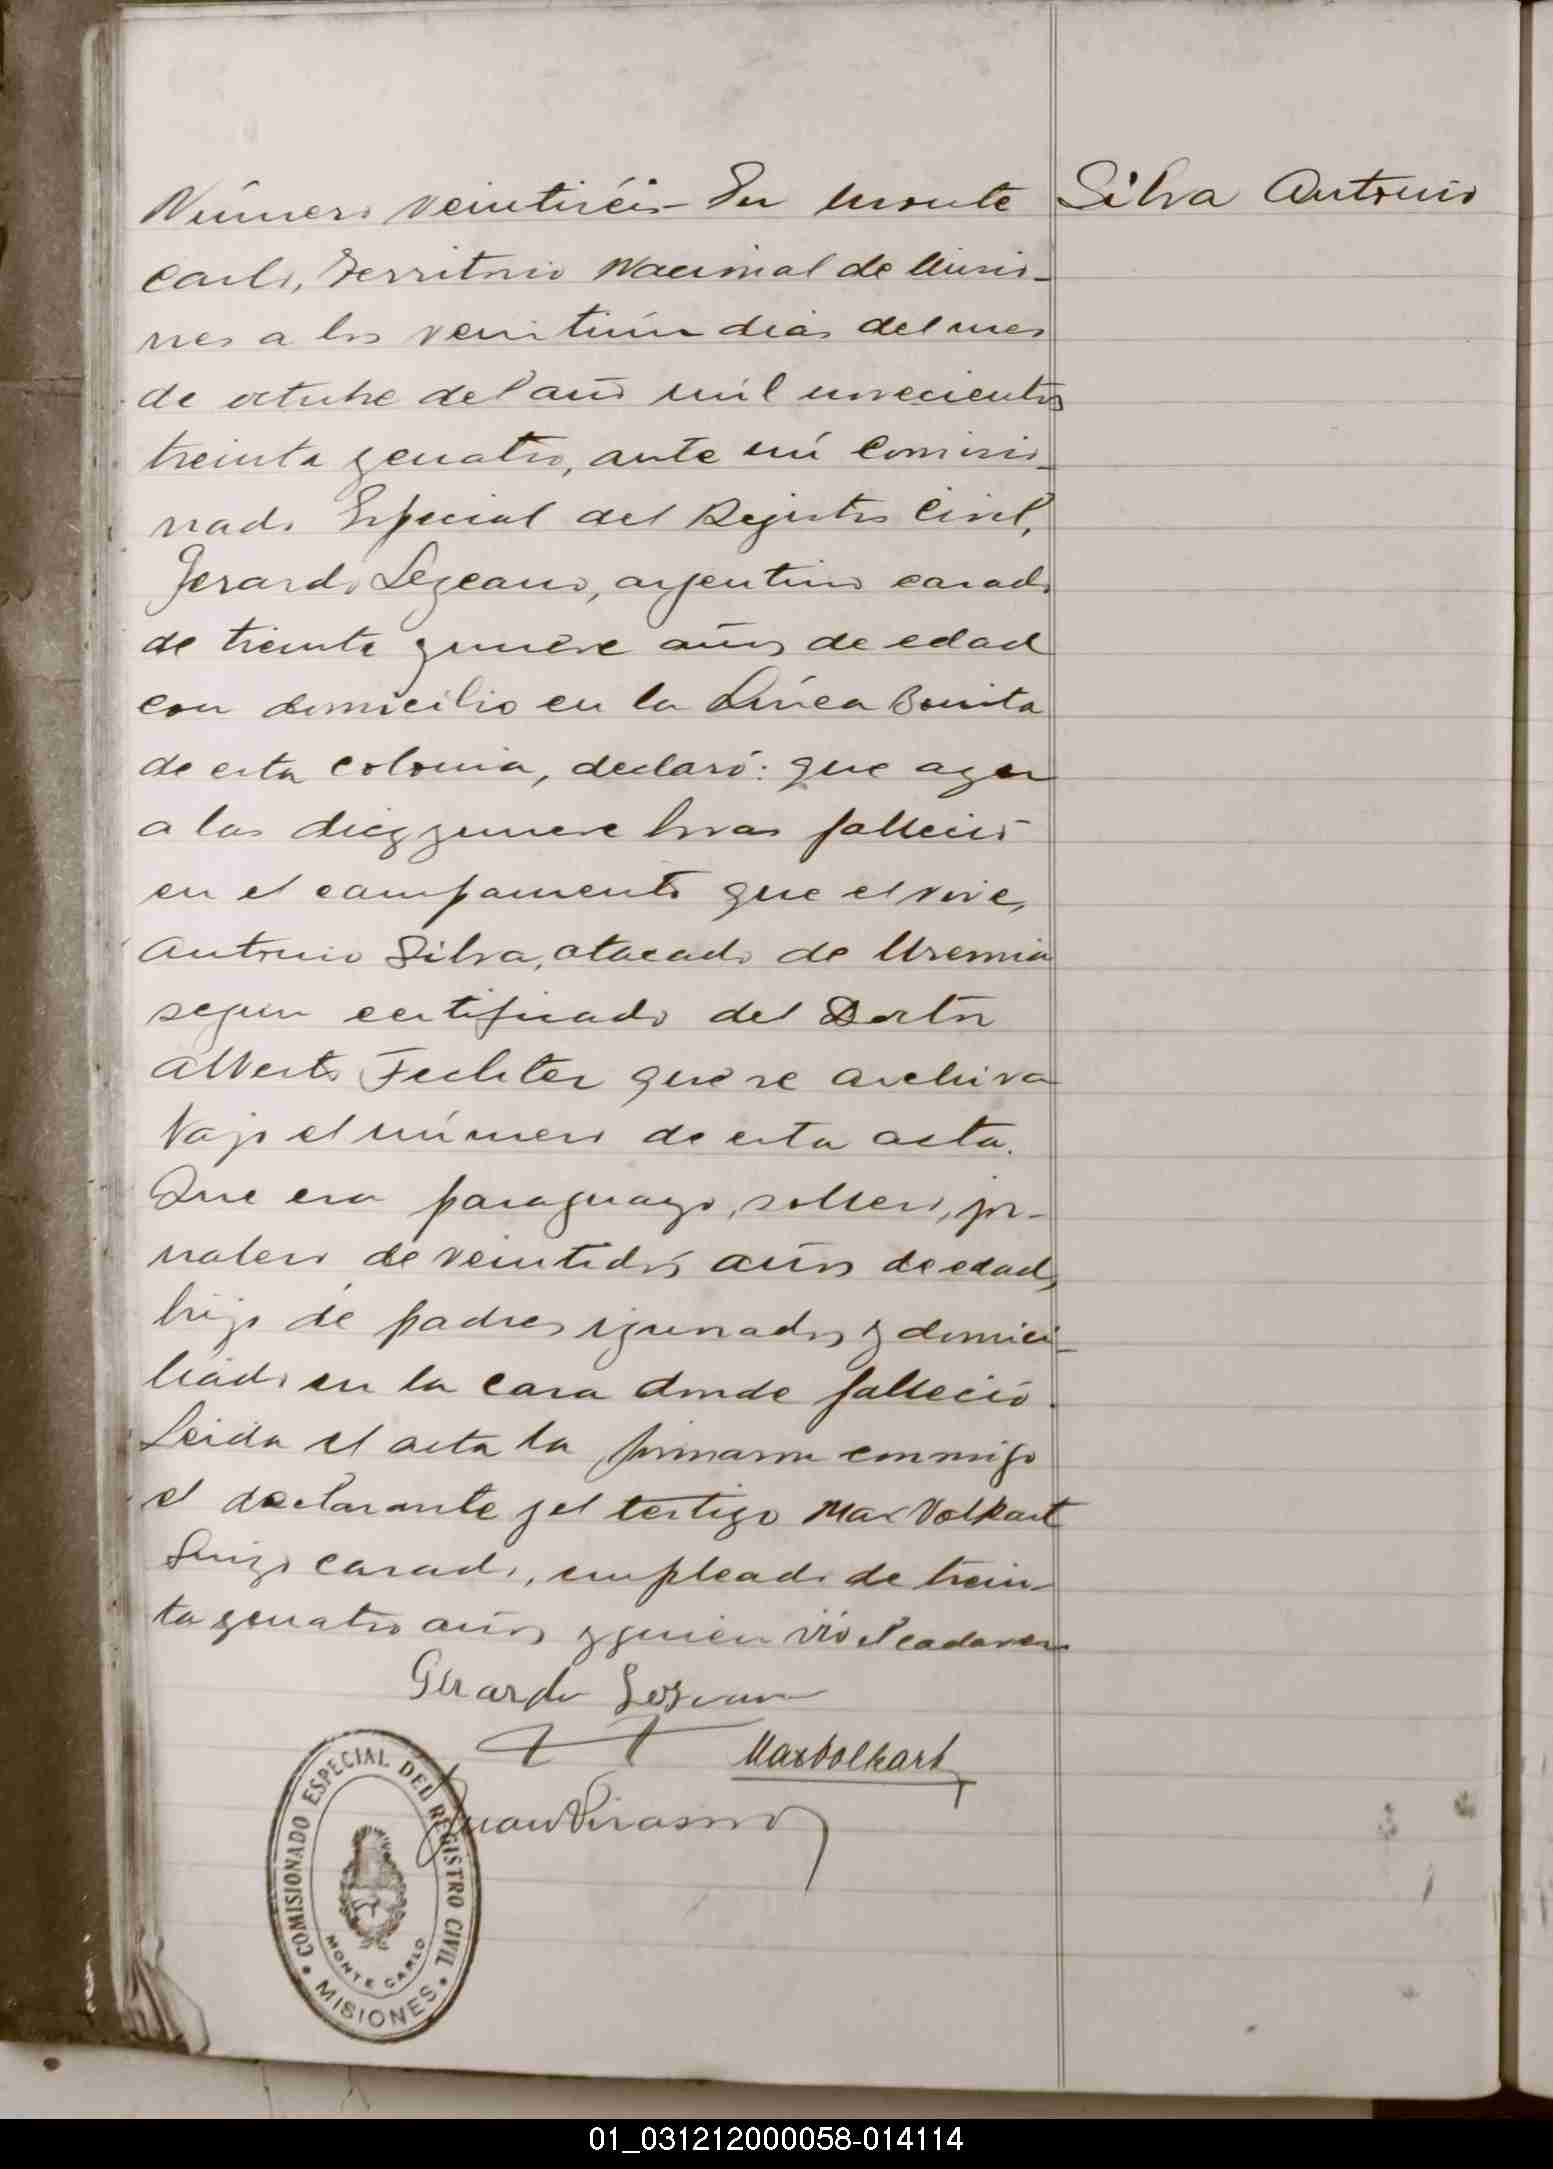 Número veintiséis - En Monte
Carlo, Territorio Nacional de Misio-
nes a los veintiún dias del mes
de octubre del año mil novecientos
treinta y cuatro, ante mí Comisio-
nado Especial del Registro Civil,
Gerardo Lezcano, argentino casado
de treinta y nueve años de edad
con domicilio en la Línea Bonita
de esta colonia, declaró: que ayer
a las diez y nueve horas falleció
en el campamento que el vive,
Antonio Silva, atacado de Uremia
segun certificado del Doctor
Alberto Fechter que se archiva
bajo el número de esta acta.
Que era paraguayo, soltero, jor-
nalero de veintidós años de edad,
hijo de padres ignorados y domici-
liado en la casa donde falleció.
Leida el acta la firmaron conmigo
el declarante y el testigo Max Volkart
Suizo casado, empleado de trein-
ta y cuatro años y quien vió el cadaver
Silva Antonio
Gerardo Lezcano
Max Volkart
Juan
COMISIONADO ESPECIAL DEL REGISTRO CIVIL
MONTE CARLO
MISIONES
01_031212000058-014114